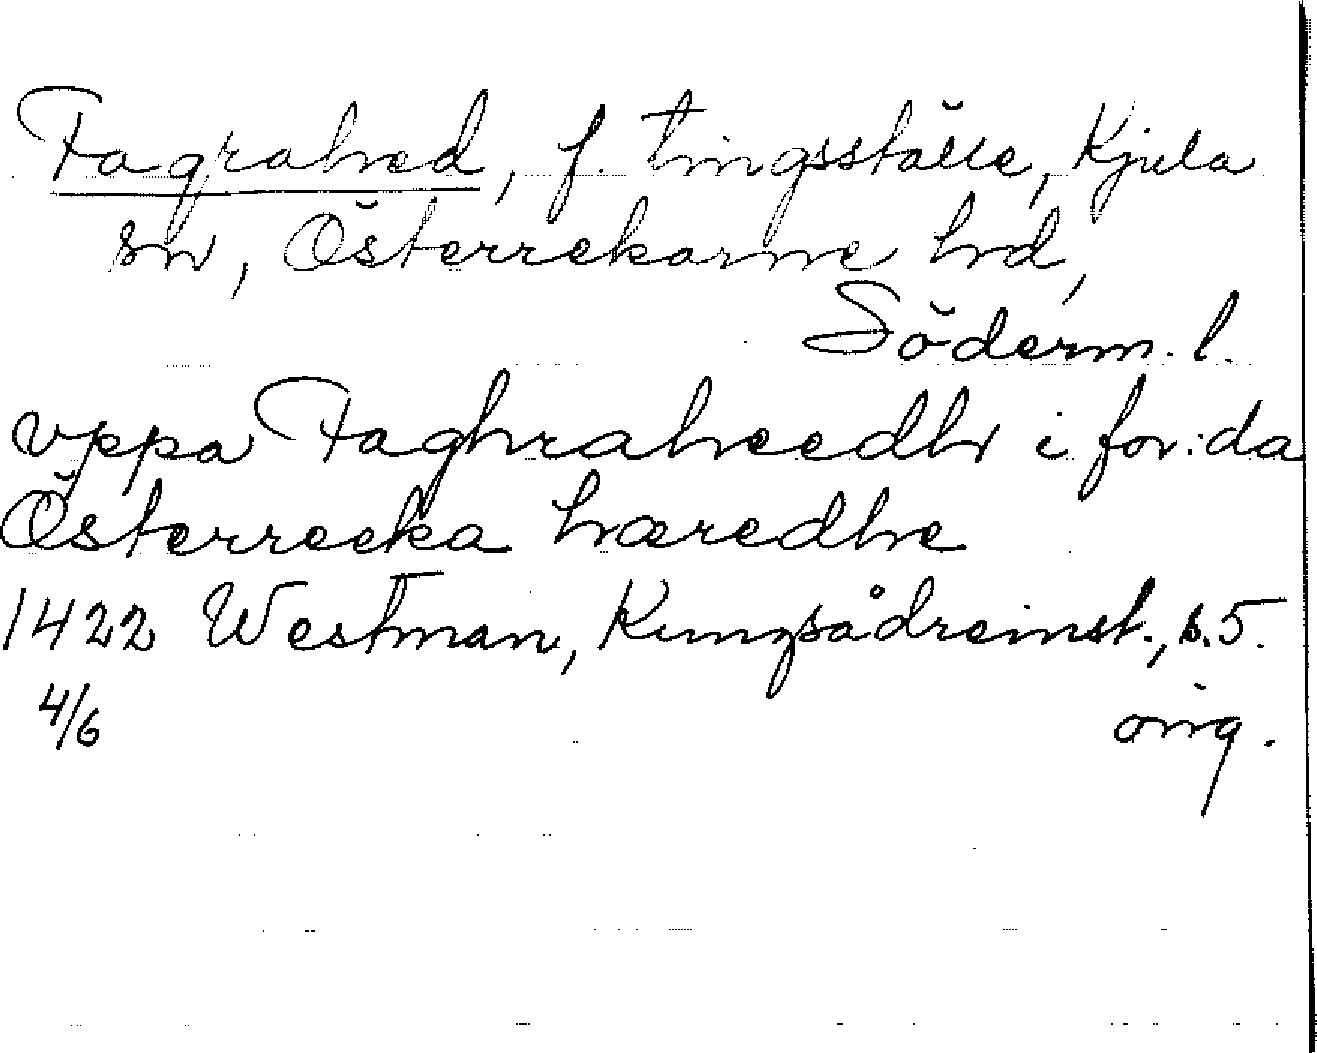 Fagrahed, f. tingsställe, Kjula
sn, Österrekarne hd,
Söderm. l.
vppa Faghraheedhr i for:da
Österrecka hæredhe
1422 Westman, Kungsådreinst., s. 5.
4/6 orig.